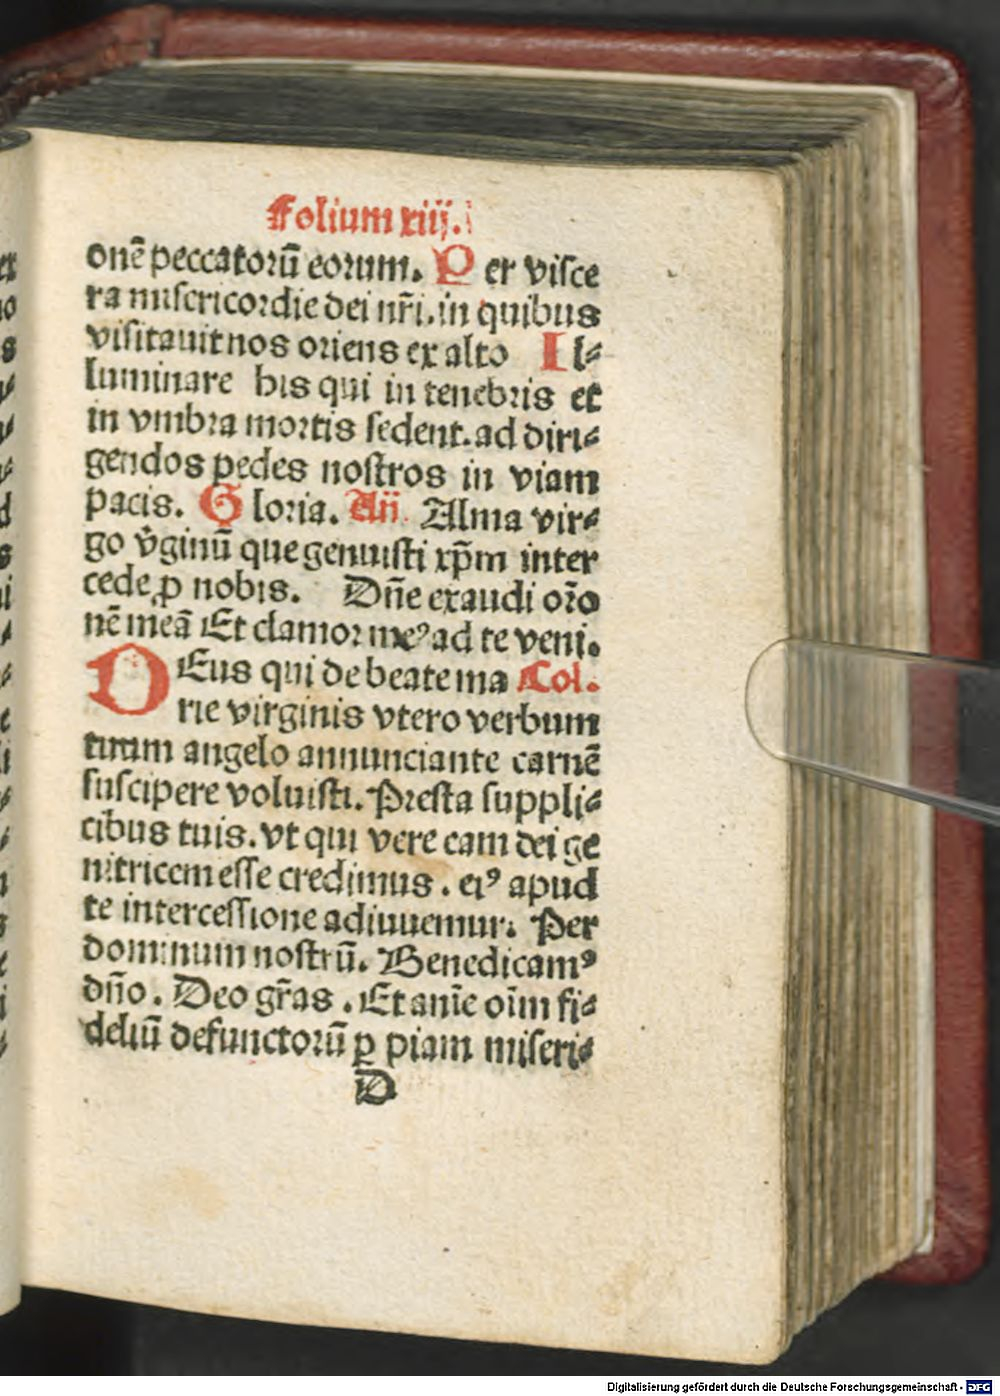 Folium xiij.
onē peccatorū eorum. Per visce
ra misericordie dei nr̄i. in quibus
visitauit nos oriens ex alto Il⸗
luminare his qui in tenebris et
in vmbra mortis sedent. ad diri⸗
gendos pedes nostros in viam
pacis. Gloria. Añ. Alma vir⸗
go v̓ginū que genuisti xp̄m inter
cede ꝓ nobis. Dn̄e exaudi or̄o
nē meā Et clamor meꝰ ad te veni.
DEus qui de beate ma Col.
rie virginis vtero verbum
tuum angelo annunciante carnē
suscipere voluisti. Presta suppli⸗
cibus tuis. vt qui vere eam dei ge
nitricem esse credimus. eiꝰ apud
te intercessione adiuuemur. Per
dominum nostrū. Benedicamꝰ
dn̄o. Deo gr̄as. Et anīe oīm fi⸗
deliū defunctorū ꝑ piam miseri⸗
D
Digitalisierung gefördert durch die Deutsche Forschungsgemeinschaft - DFG